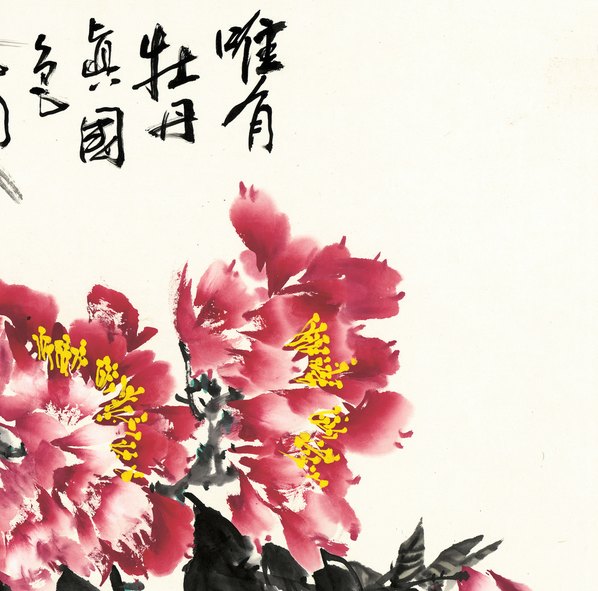 唯有
牡丹
真國
色